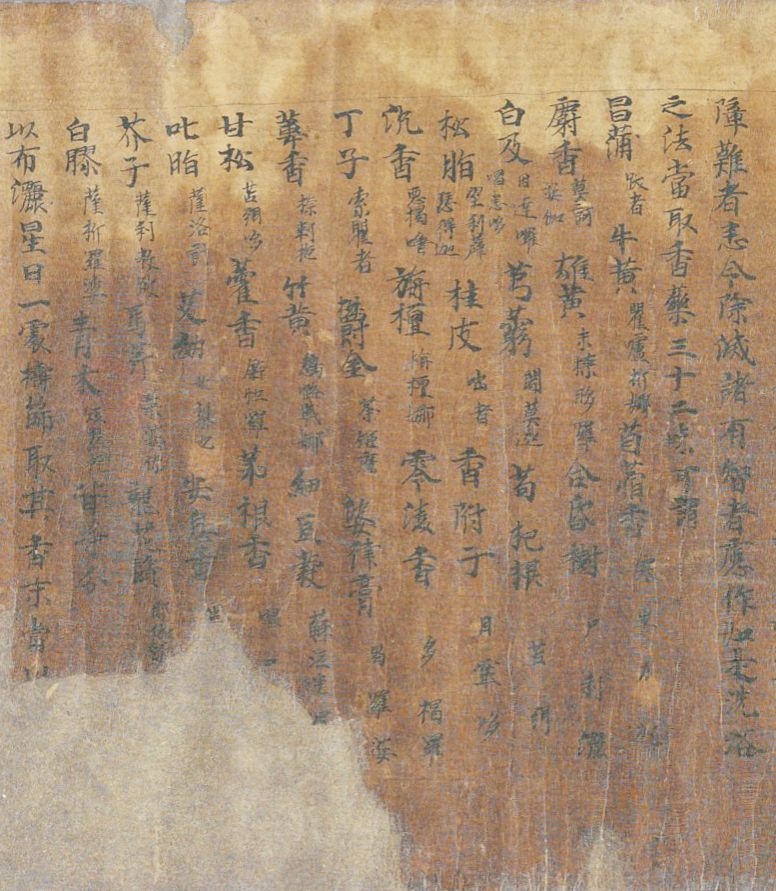 障難者悉令除滅諸有智者應作如是洗浴
之法當取香藥三十二味所謂
昌蒲 跋者 牛黃 瞿盧折娜 苜蓿香
麝香 莫訶婆伽 雄黃 末㮈眵羅 合昏樹 尸利灑
白及 因達囉喝悉哆 芎藭 闍莫迦 苟杞根 苫弭
松脂 室利薜瑟得迦 桂皮 咄者 香附子 目窣哆
沉香 惡揭嚕 旃檀 旃檀娜 零凌香 多揭羅
丁子 索瞿者 欝金 茶矩麼 婆律膏 曷羅娑
葦香 㮈刺柁 竹黃 鶻路戰娜 細豆蔻 蘇泣迷
甘松 苫弭哆 藿香 鉢怛羅 茅根香 嗢
叱脂 薩洛計 艾納 世黎也 安息香
芥子 薩利殺跛 馬芹 葉婆你 龍花鬚
白膠 薩折羅婆 青木 矩瑟侘
以布灑星日一處擣篩取其香末當以